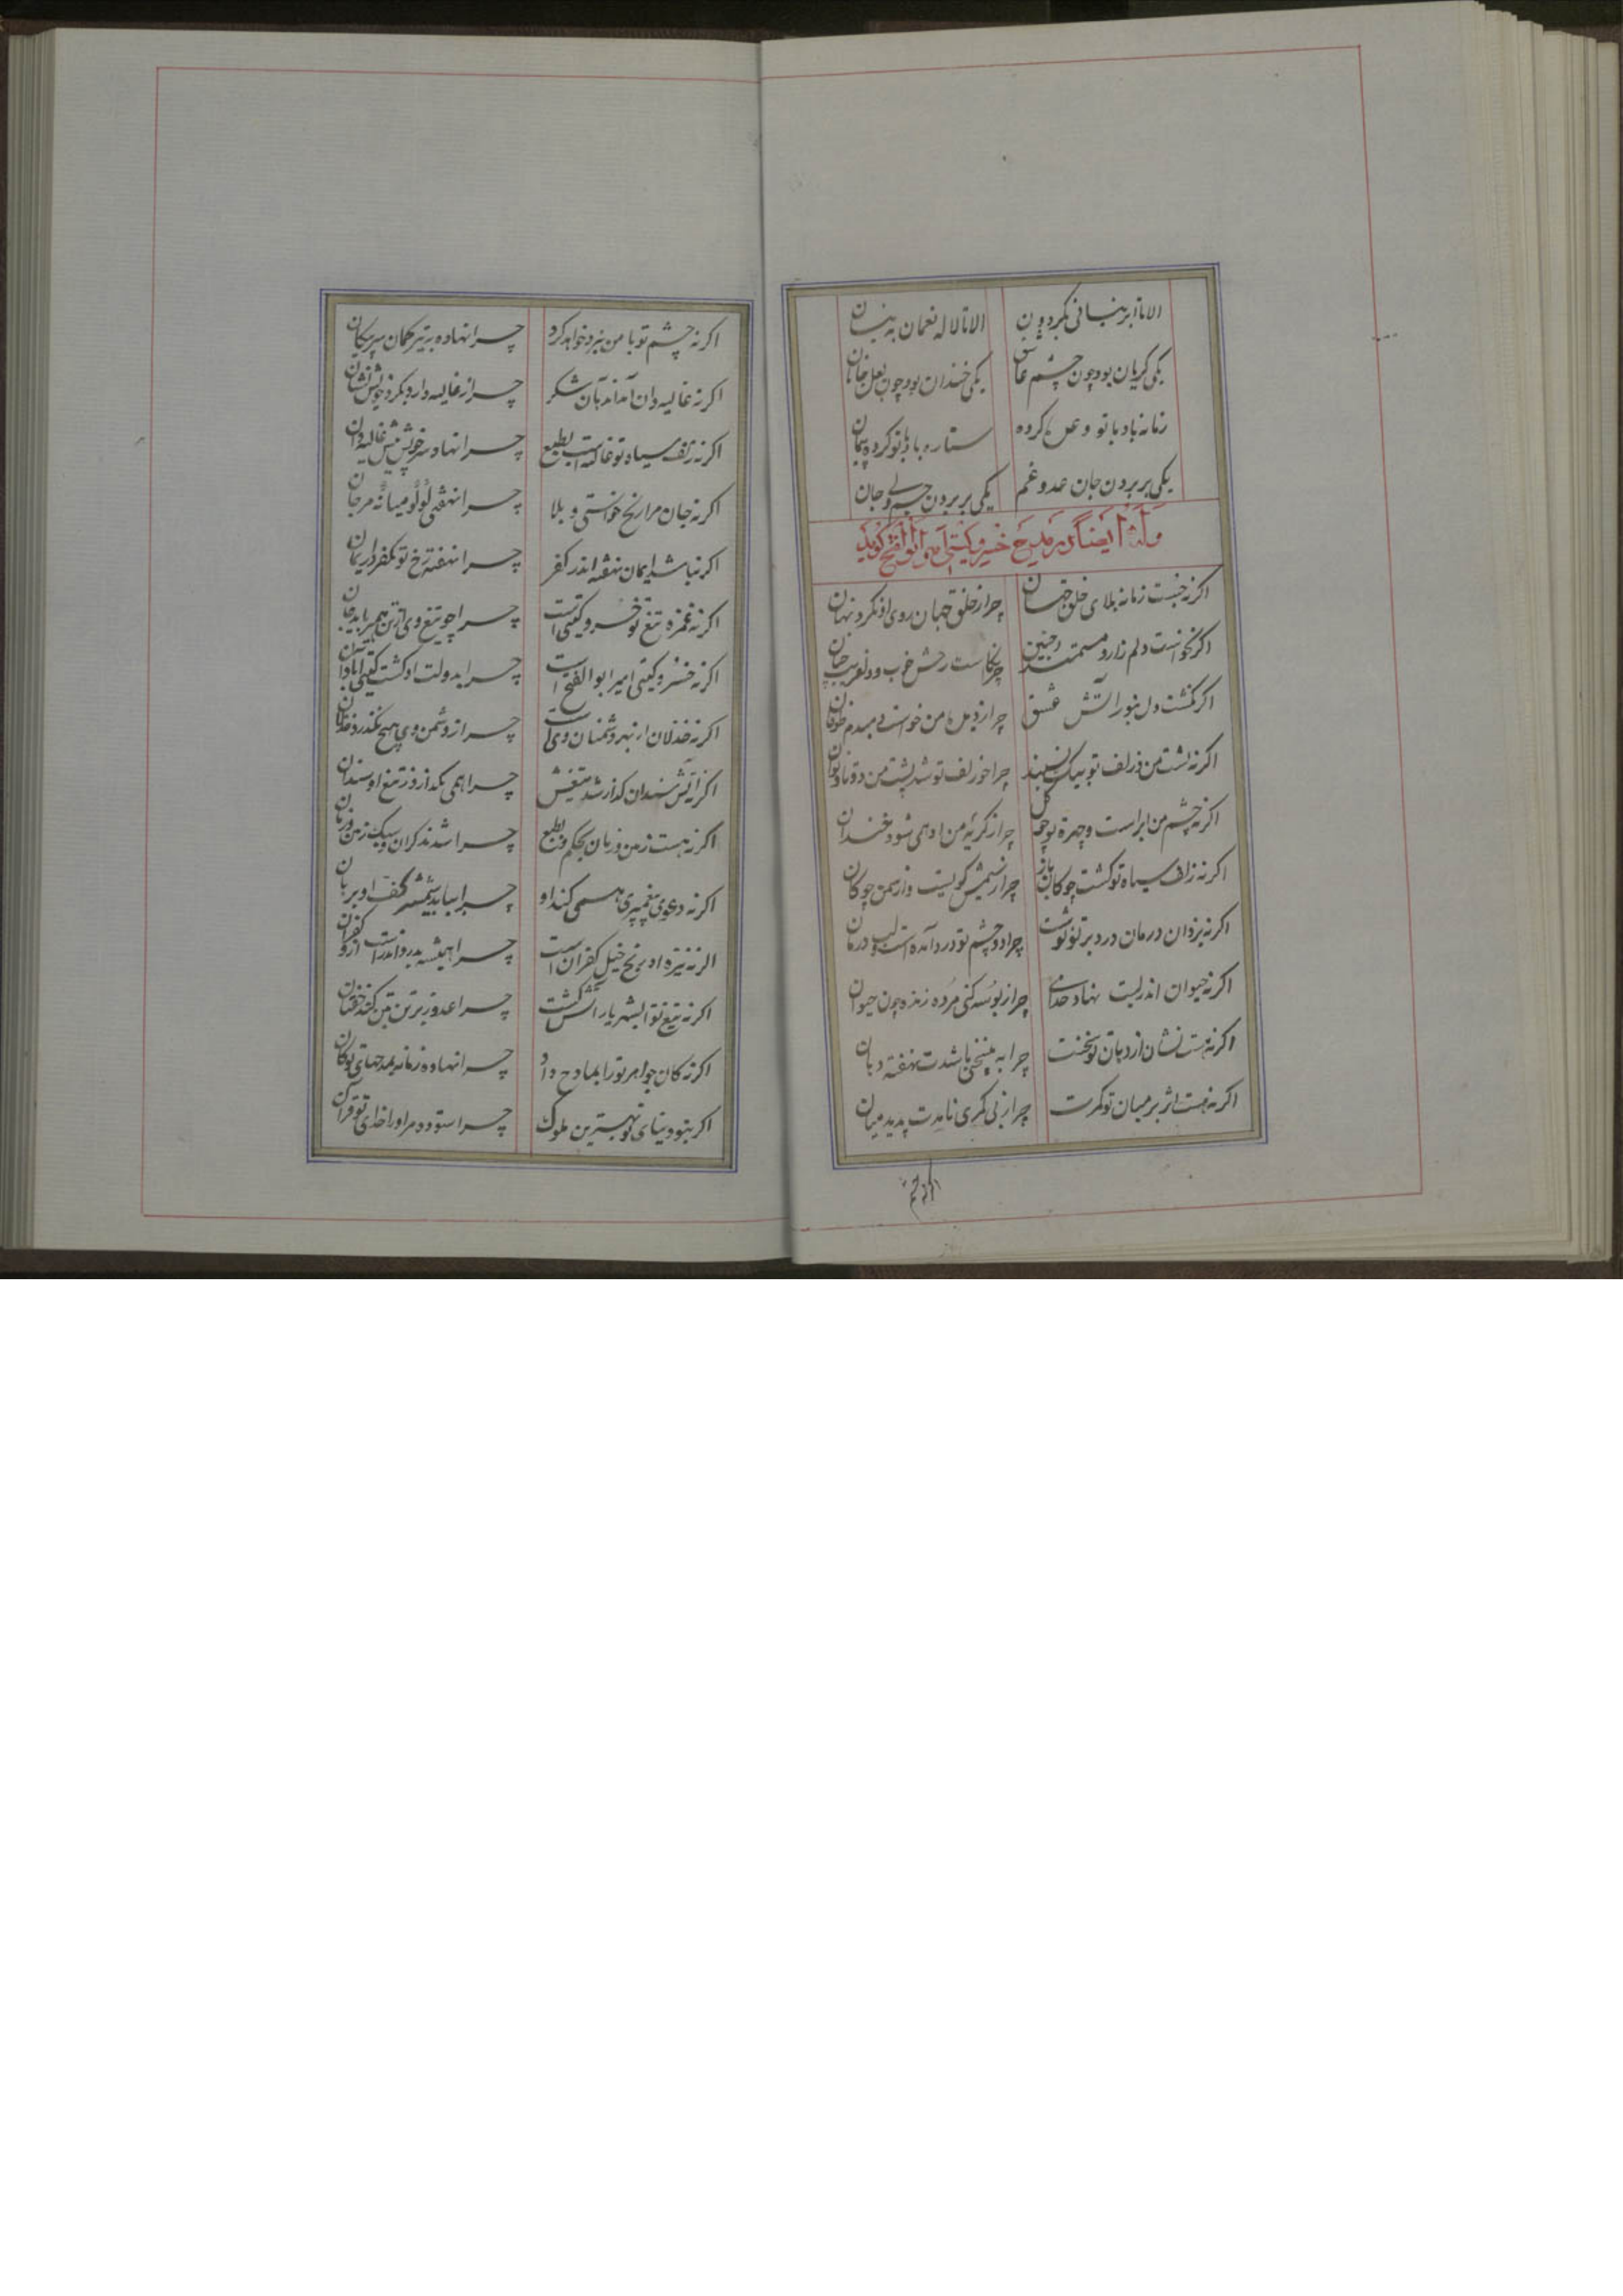 الا تا ابر نیسانی بگرید بر الا تا لاله نعمان به نیسان
یکی گریان بود چون چشم عاشق یکی خندان بود چون لعل جانان
زمانه باد با تو کرده ستاره باد با تو کرده پیمان
یکی بر بردن جان عدو غم یکی بر بردن جان
وله ایضا در مدیح خسرو گیتی امیر ابوالفتح گوید
اگر نه جست زمانه بلای خلق جهان چرا ز خلق جهان روی او نکرد نهان
اگر نخواست دلم زار و مستمند و حزین چرا رخش خوب و دلفریب چنان
اگر نگشت دل پر آتش عشق چرا ز من خواست دمیدم طوفان
اگر نه پشت من و زلف تو بیک نسبند چرا چو زلف تو شد پشت من دوتا و نوان
اگر نه چشم من ابر است و چهره تو چو گل چرا ز گریه من او همی شود خندان
اگر نه زلف سیاه تو گشت چوگان باز چرا ز گویست و از سمن چوگان
اگر نه یزدان درمان درد بر تو نوشت چرا دو چشم تو درد آمده است و لب درمان
اگر نه حیوان اندر لبت نهاد خدای چرا ز بوسه کنی مرده زنده چون حیوان
اگر نه هست نشان از دهان تو سخنت چرا به بی سخنی باشدت نهفته دهان
اگر نه هست اثر بر میان تو کمرت چرا ز بی کمری نامدت پدید میان
اگر نه چشم
اگر نه چشم تو با من نبرد خواهد کرد چرا نهاده به تیر کمان سر پیکان
اگر نه غالیه دان آمد آن شکر چرا ز غالیه دارد بگرد خویش نشان
اگر نه زلف سیاه تو عاشق است بطبع چرا نهاد سر خویش پیش غالیه دان
اگر نه جان مرا رنج خواستی و بلا چرا نهفتی لولو میانه مرجان
اگر نباشد ایمان نهفته اندر کفر چرا نهفته رخ تو بکفر در ایمان
اگر نه غمزه تو تیغ خسرو گیتی است چرا چو تیغ وی از تن همی رباید جان
اگر نه خسرو گیتی امیر ابوالفتح است چرا بدولت او گشت گیتی آبادان
اگر نه خذلان از بهر دشمنان وی است چرا ز دشمن وی هیچ نگذرد خذلان
اگر نه آتش سندان گداز شد تیغش چرا همی بگدازد ز تیغ او سندان
اگر نه هست زمین و زمان بحکم و بطبع چرا شدند گران و سبک زمین و زمان
اگر نه دعوی پیغمبری همی کند او چرا نماید شمشیر کف او برهان
اگر نه نیزه او رنج خیل کفران است چرا همیشه بدرد اندر است ازو کفران
اگر نه تیغ تو ای شهریار آتش گشت چرا عدو ز بر تن کند خفتان
اگر نه کان جواهر تو را بمادح داد چرا نهاده زمانه بمدحهای تو کان
اگر نبود نیای تو بهترین ملوک چرا ستوده مر او را خدای در قرآن